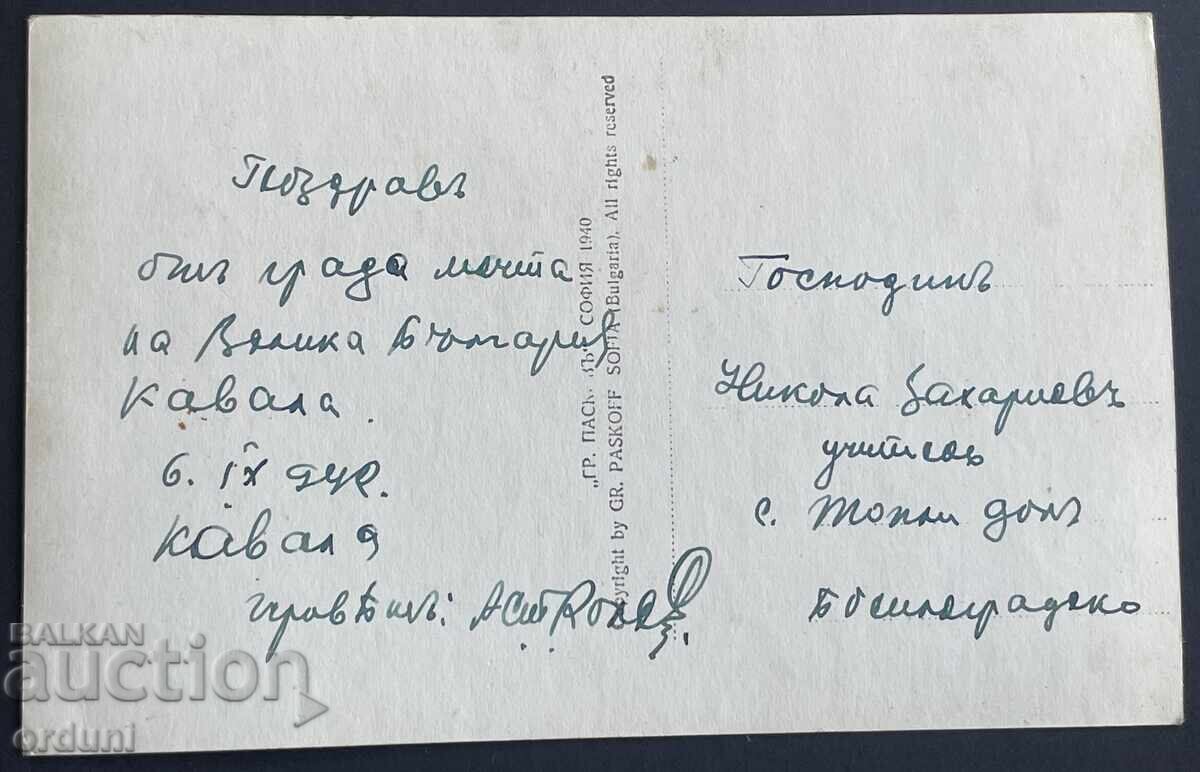 Поздравъ
отъ града мечта
на Велика България
Кавала.
6. IX
Кавала
„ГР. ПАСКОВЪ" СОФИЯ 1940
Copyright by GR. PASKOFF SOFIA (Bulgaria). All rights reserved
Господинъ
Никола Захариевъ
учитель
с. Топли долъ
Босилеградско
BALKAN
auction
orduni